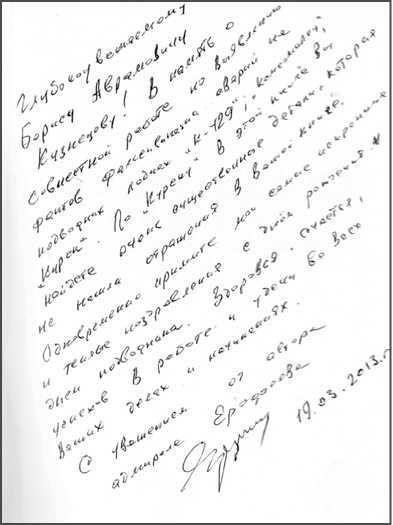 Глубокоуважаемому
Борису Аврамовичу
Кузнецову! В память о
совместной работе по выявлению
фактов фальсификации аварий на
подводных лодках "К-129", "Комсомолец",
"Курск". По "Курску" в этой книге Вы
найдете очень существенные детали, которая
не нашла отражения в Вашей книге.
Одновременно примите мои самые искренние
и теплые поздравления с днём рождения и
днем подводника. Здоровья, счастья,
успехов в работе и удачи во всех
Ваших делах и начинаниях.
С уважением от автора
адмирала
19.03.2013 г